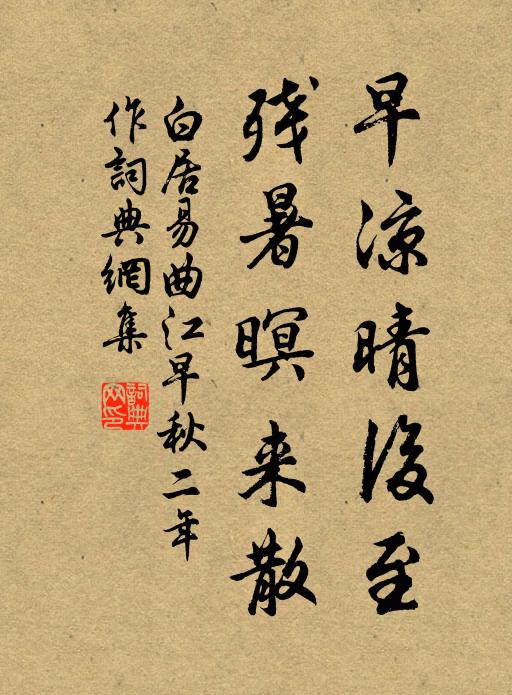 早凉晴後至
残暑暝来散
白居易曲江早秋二年
作詞典網集
詞典网印